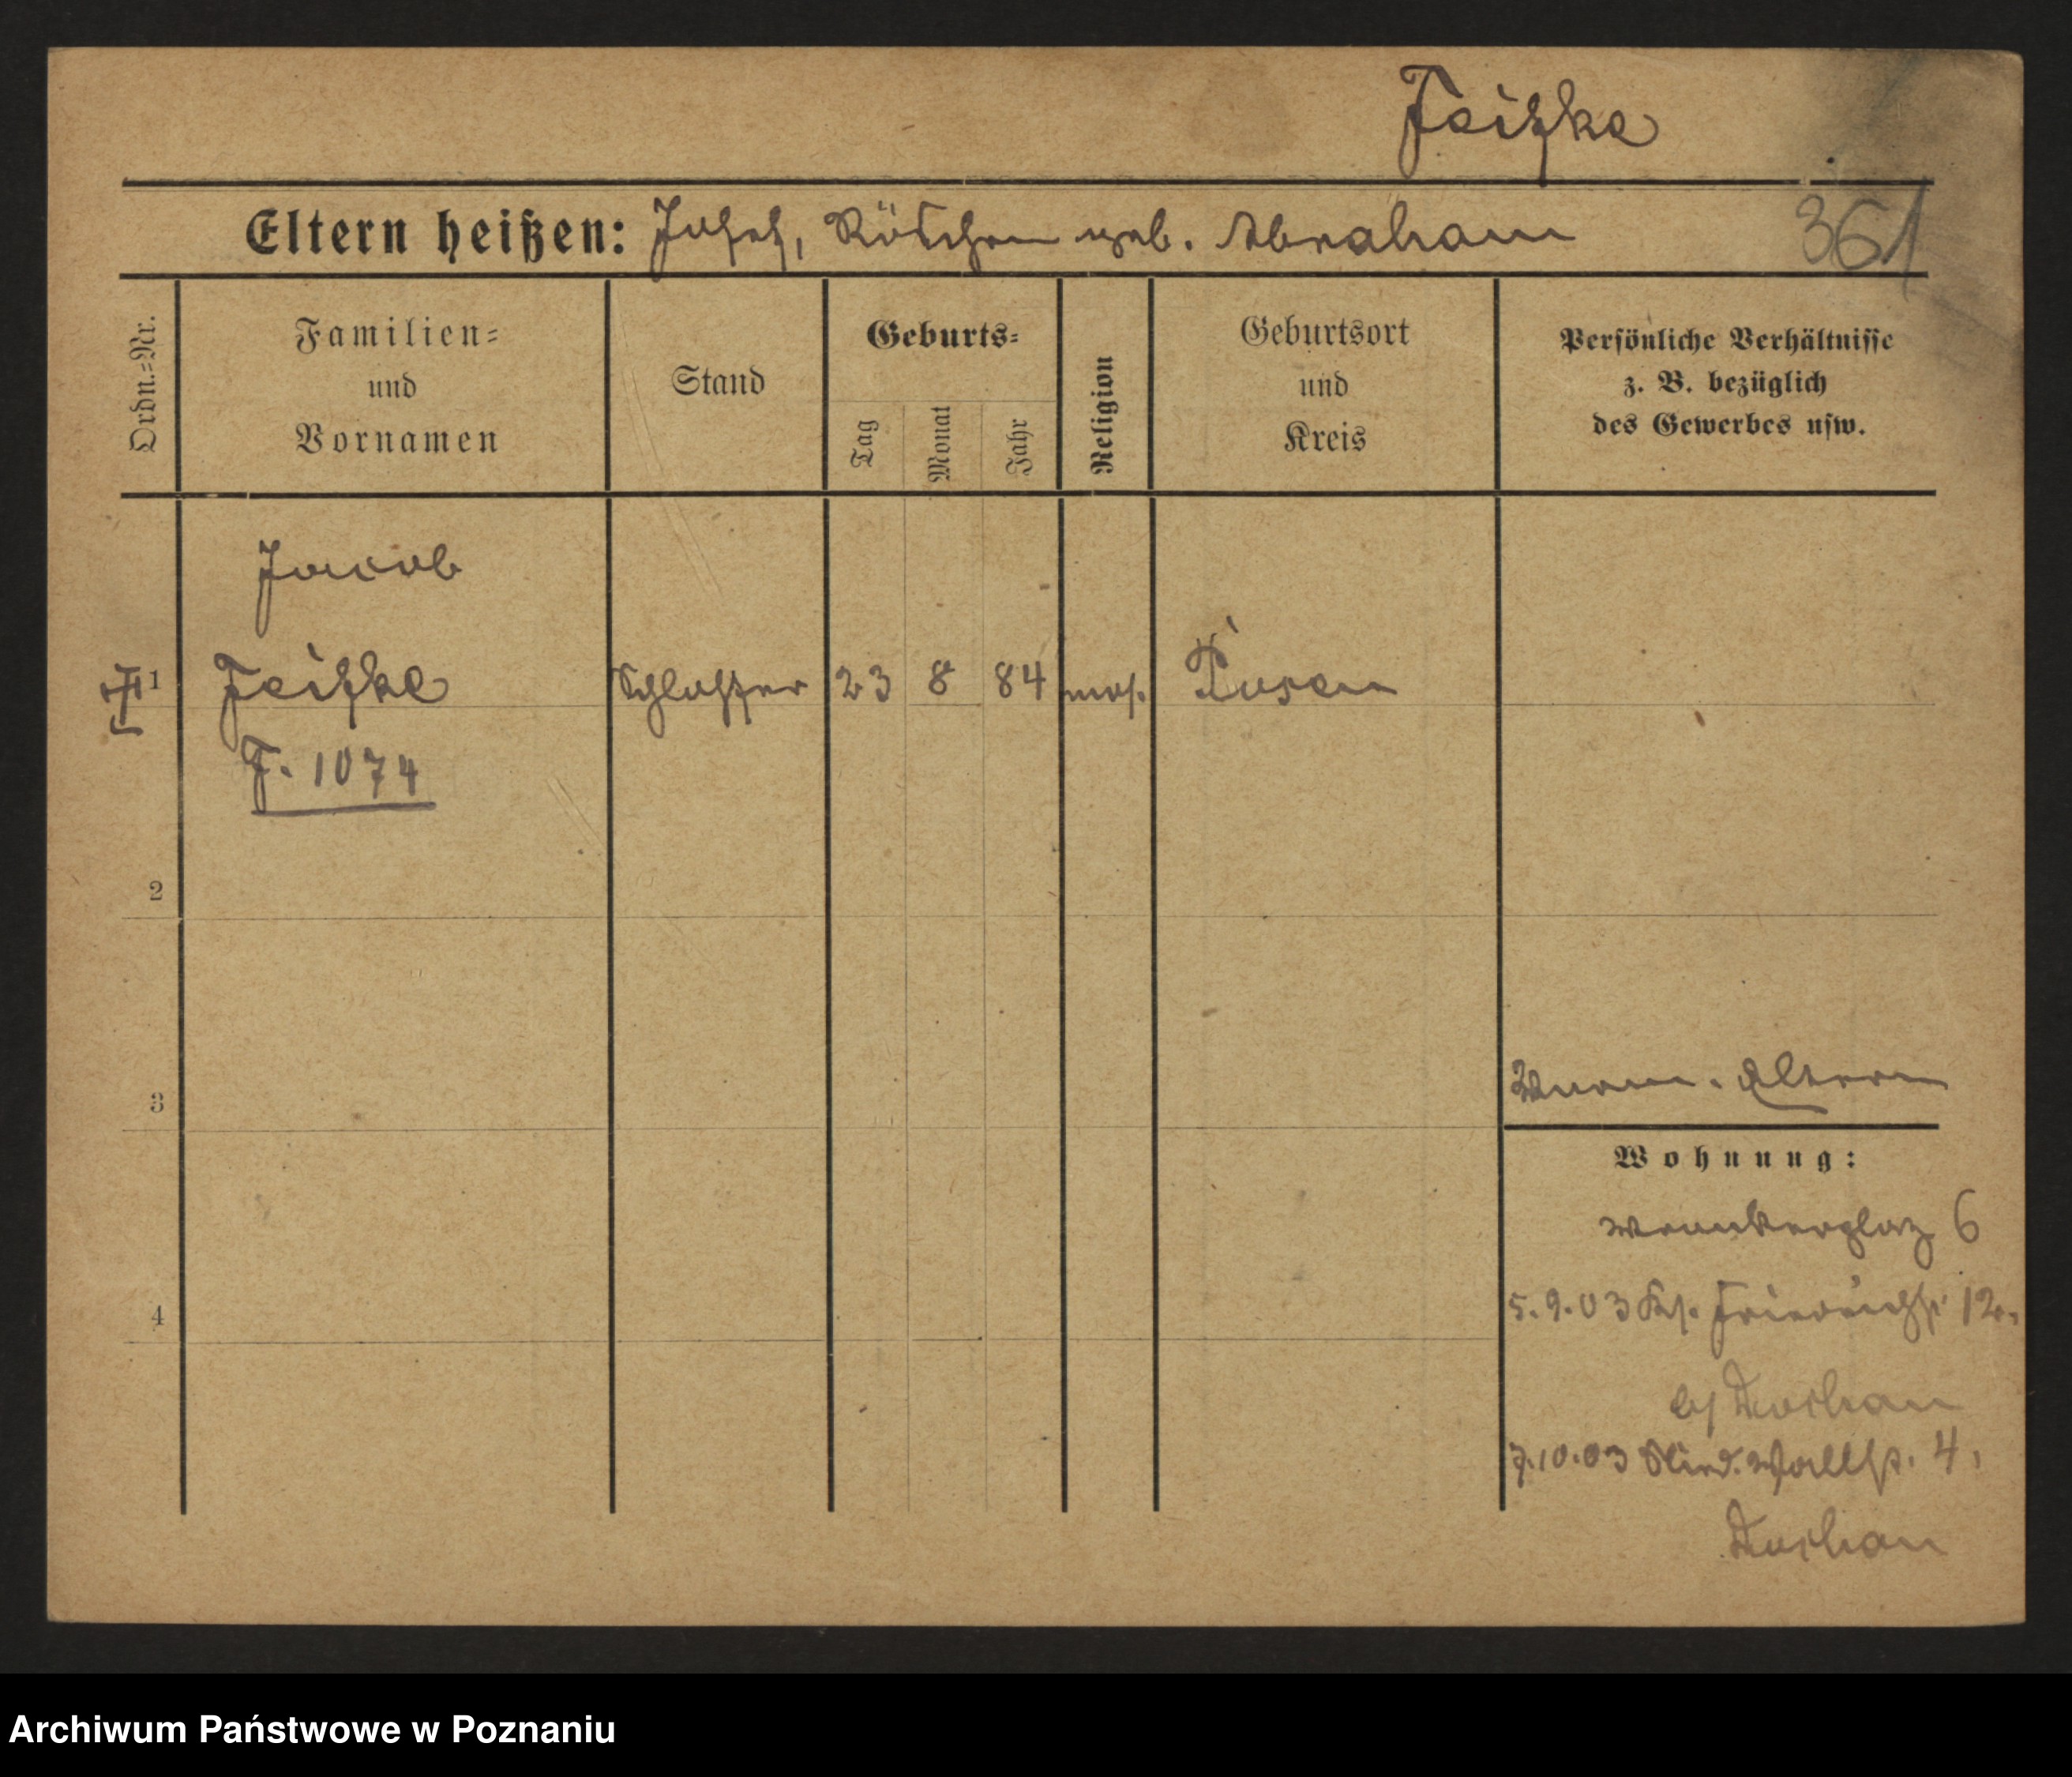 Feitzke
Eltern heißen: Josef, Röschen geb. Abraham
361
Ordn.=Nr.
Familien=
und
Vornamen
Stand
Geburts=
Tag
Monat
Jahr
Religion
Geburtsort
und
Kreis
Persönliche Verhältnisse
z. B. bezüglich
des Gewerbes usw.
Jacob
1 Schlosser 23 8 84 mos. Posen
F. 1074
2
3
Eltern
Wohnung:
Wronkerplaz 6
5.9.03 Friedrichstr 12.
b/
4
7.10.03 Wallstr. 4,
Archiwum Państwowe w Poznaniu